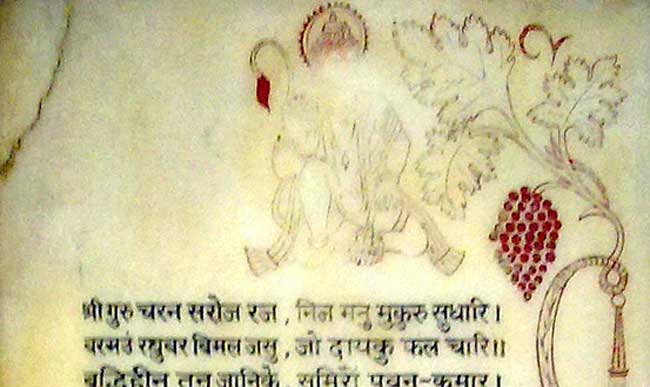 श्री गुरु चरन सरोज रज , निज मनु मुकुरु सुधारि ।
बरनउं रघुबर बिमल जसु , जो दायकु फल चारि ॥
बुद्धिहीन तनु जानिके , सुमिरौं पवन-कुमार ।